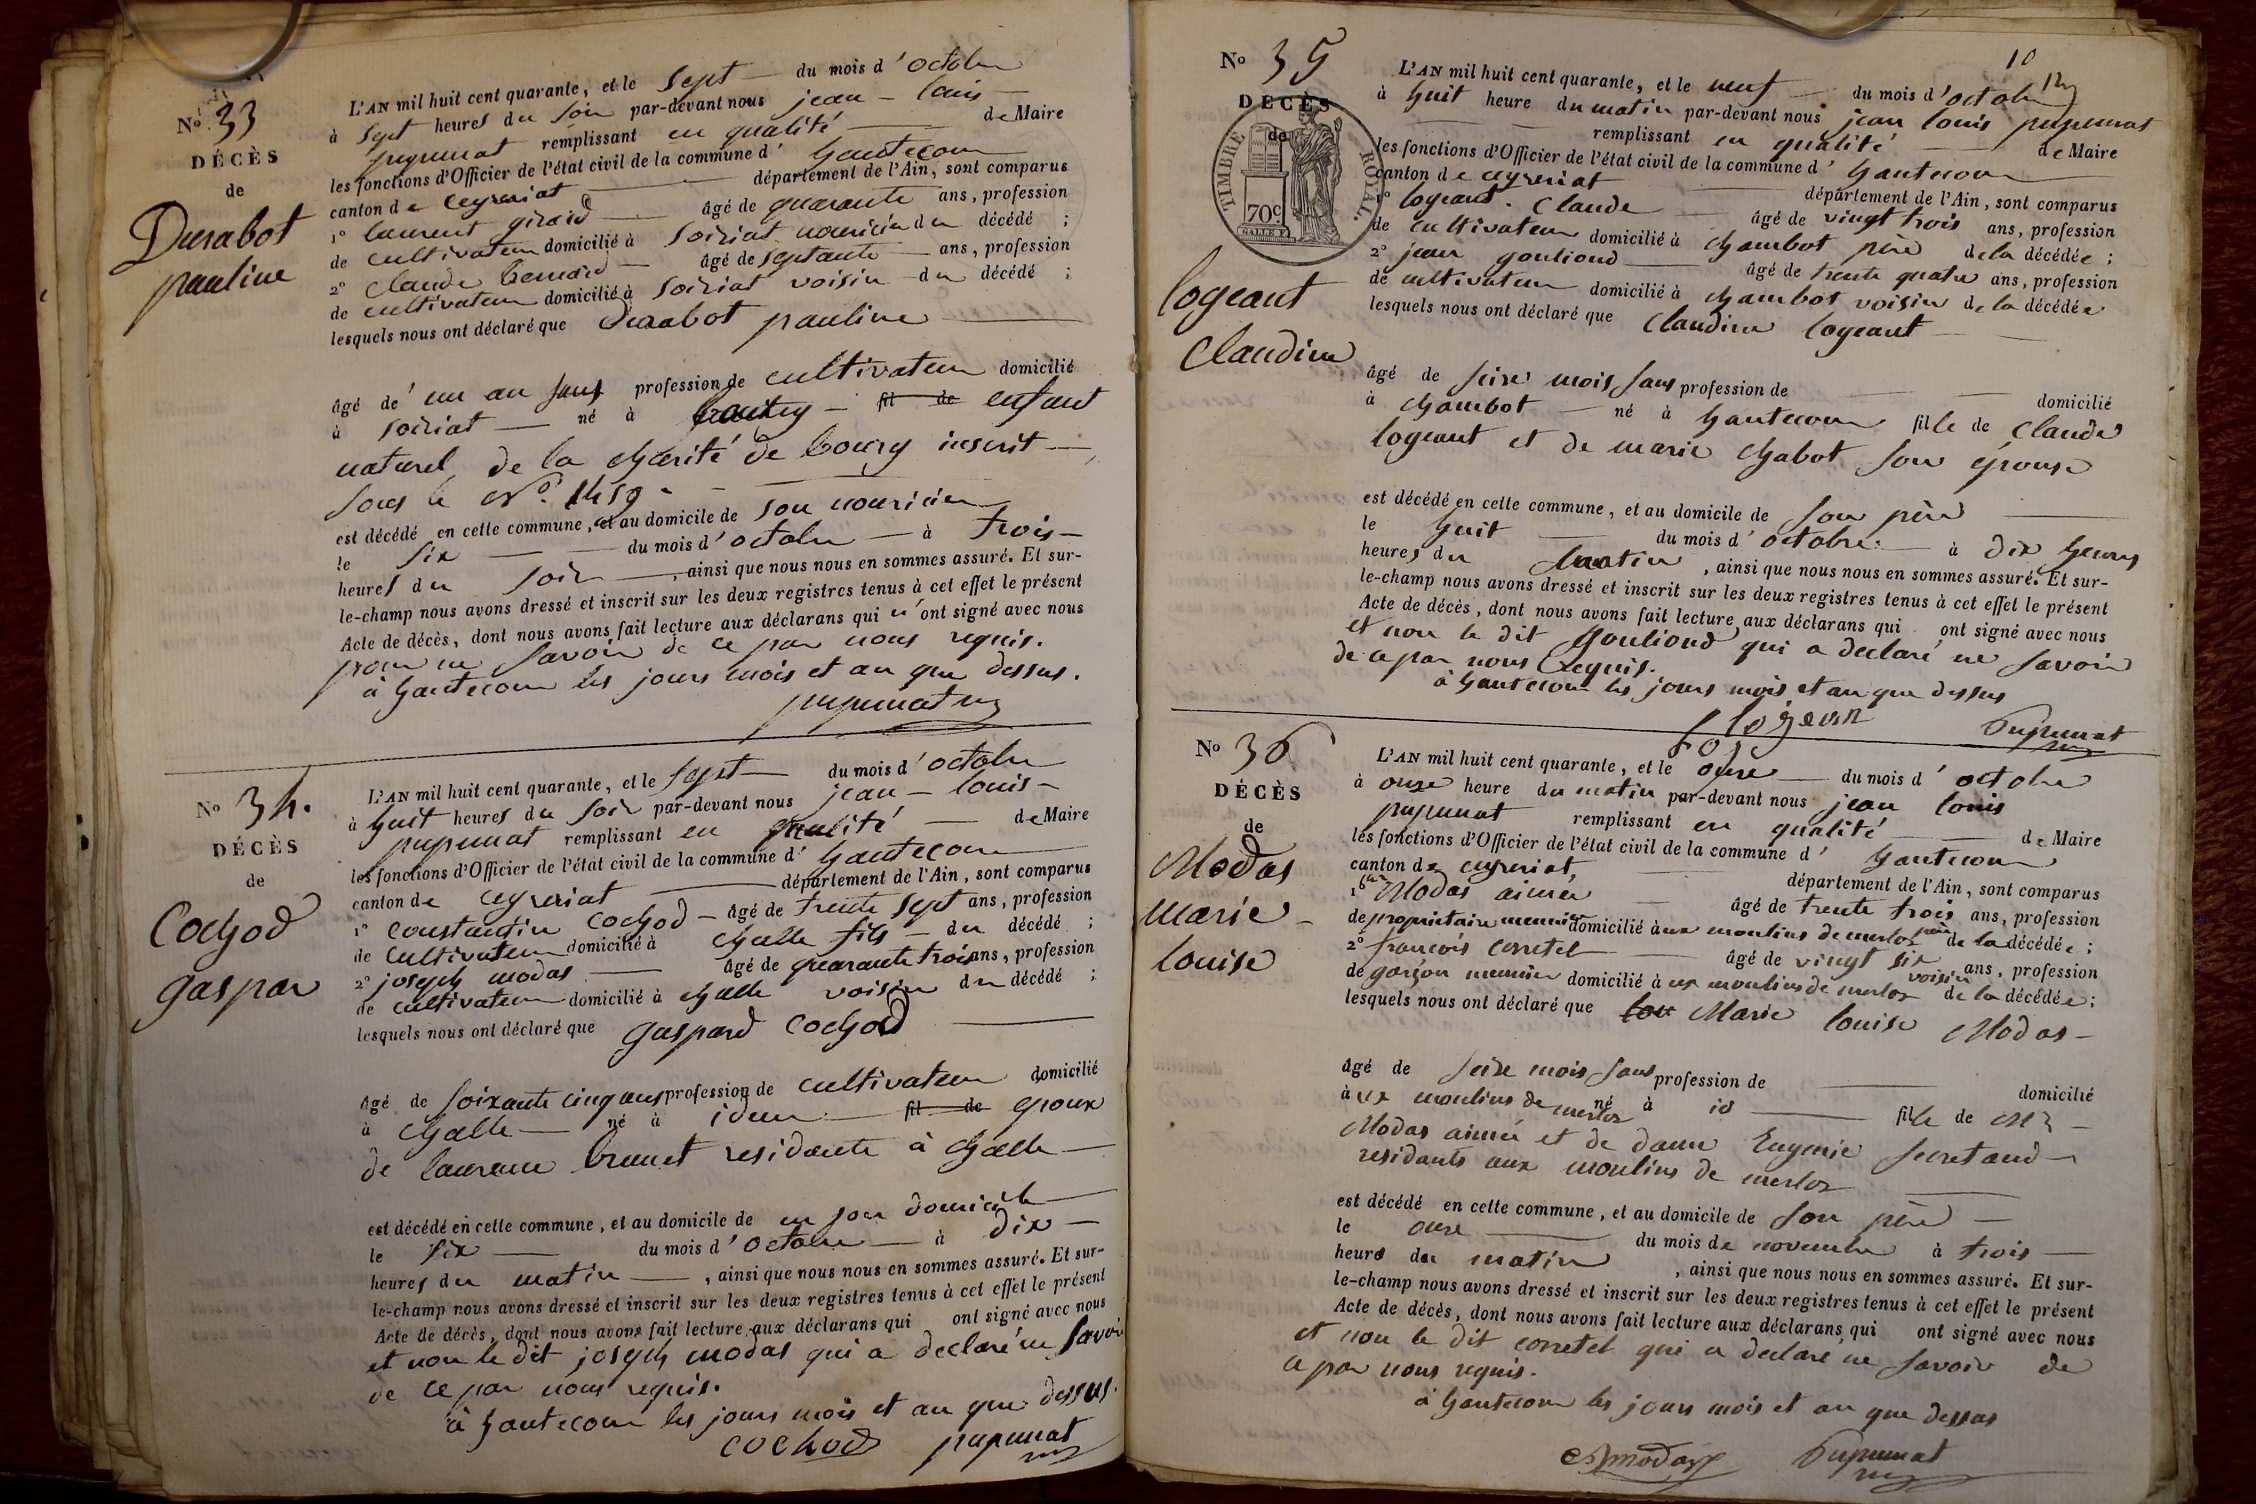 N.o 33
DÉCÈS
de
Durabot
pauline
L'AN mil huit cent quarante, et le sept du mois d'octobre
à sept heures du soir par-devant nous jean-louis
pupunat remplissant en qualité de Maire
les fonctions d'Officier de l'état civil de la commune d'hautecour
canton de ceyzeriat département de l'Ain, sont comparus
1° laurent girard âgé de quarante ans, profession
de cultivateur domicilié à soiriat nouricier du décédé ;
2° claude bernard âgé de septante ans, profession
de cultivateur domicilié à soiriat voisin du décédé ;
lesquels nous ont déclaré que durabot pauline
âgé de un an sans profession de cultivateur domicilié
à soiriat né à bourg fil de enfant
naturel de la charité de bourg inscrit
sous le N.o 1459
est décédé en cette commune, et au domicile de son nouricier
le six du mois d'octobre à trois
heures du soir, ainsi que nous nous en sommes assuré. Et sur-
le-champ nous avons dressé et inscrit sur les deux registres tenus à cet effet le présent
Acte de décès, dont nous avons fait lecture aux déclarans qui n'ont signé avec nous
pour ne savoir de ce par nous requis.
à hautecour les jours mois et an que dessus.
pupunat
N.o 34.
DÉCÈS
de
Cochod
gaspar
L'AN mil huit cent quarante, et le sept du mois d'octobre
à huit heures du soir par-devant nous jean-louis
pupunat remplissant en qualité de Maire
les fonctions d'Officier de l'état civil de la commune d'hautecour
canton de ceyzeriat département de l'Ain, sont comparus
1° constantin cochod âgé de trente sept ans, profession
de cultivateur domicilié à challe fils du décédé ;
2° joseph modas âgé de quarante trois ans, profession
de cultivateur domicilié à challe voisin du décédé ;
lesquels nous ont déclaré que gaspard cochod
âgé de soixante cinq ans profession de cultivateur domicilié
à challe né à idem fil de epoux
de laurence brunet residante à challe
est décédé en cette commune, et au domicile de en son domicile
le six du mois d'octobre à dix
heures du matin, ainsi que nous nous en sommes assuré. Et sur-
le-champ nous avons dressé et inscrit sur les deux registres tenus à cet effet le présent
Acte de décès, dont nous avons fait lecture aux déclarans qui ont signé avec nous
et non le dit joseph modas qui a declaré ne savoir
de ce par nous requis.
à hautecour les jours mois et an que dessus.
cochod pupunat
10
N.o 35
DÉCÈS
de
TIMBRE ROYAL.
70c.
logeant
Claudine
L'AN mil huit cent quarante, et le neuf du mois d'octobre
à huit heure du matin par-devant nous jean louis pupunat
remplissant en qualité de Maire
les fonctions d'Officier de l'état civil de la commune d'hautecour
canton de ceyzeriat département de l'Ain, sont comparus
1° logeant Claude âgé de vingt trois ans, profession
de cultivateur domicilié à chambot père de la décédée ;
2° jean gouliond âgé de trente quatre ans, profession
de cultivateur domicilié à chambot voisin de la décédée
lesquels nous ont déclaré que Claudine logeant
âgé de seize mois sans profession de domicilié
à chambot né à hautecour fille de Claude
logeant et de marie chabot son épouse
est décédé en cette commune, et au domicile de son père
le huit du mois d'octobre à dix heures
heures du matin, ainsi que nous nous en sommes assuré. Et sur-
le-champ nous avons dressé et inscrit sur les deux registres tenus à cet effet le présent
Acte de décès, dont nous avons fait lecture aux déclarans qui ont signé avec nous
et non le dit gouliond qui a declaré ne savoir
de ce par nous requis.
à hautecour les jours mois et an que dessus
logean pupunat
N.o 36
DÉCÈS
de
Modas
Marie
louise
L'AN mil huit cent quarante, et le onze du mois d'octobre
à onze heure du matin par-devant nous jean louis
pupunat remplissant en qualité de Maire
les fonctions d'Officier de l'état civil de la commune d'hautecour
canton de ceyzeriat, département de l'Ain, sont comparus
1° Modas aimée âgé de trente trois ans, profession
de propriétaire meunier domicilié à ux moulins de merloz père de la décédée ;
2° francois corretel âgé de vingt six ans, profession
de garçon meunier domicilié à ux moulins de merloz voisin de la décédée ;
lesquels nous ont déclaré que lou Marie louise Modas
âgé de seize mois sans profession de domicilié
à ux moulins de merloz né à id fille de Mr
Modas aimée et de dame Eugenie secretand
residants aux moulins de merloz
est décédé en cette commune, et au domicile de son père
le onze du mois de novembre à trois
heures du matin, ainsi que nous nous en sommes assuré. Et sur-
le-champ nous avons dressé et inscrit sur les deux registres tenus à cet effet le présent
Acte de décès, dont nous avons fait lecture aux déclarans qui ont signé avec nous
et non le dit corretel qui a declaré ne savoir de
ce par nous requis.
à hautecour les jours mois et an que dessus
modas pupunat